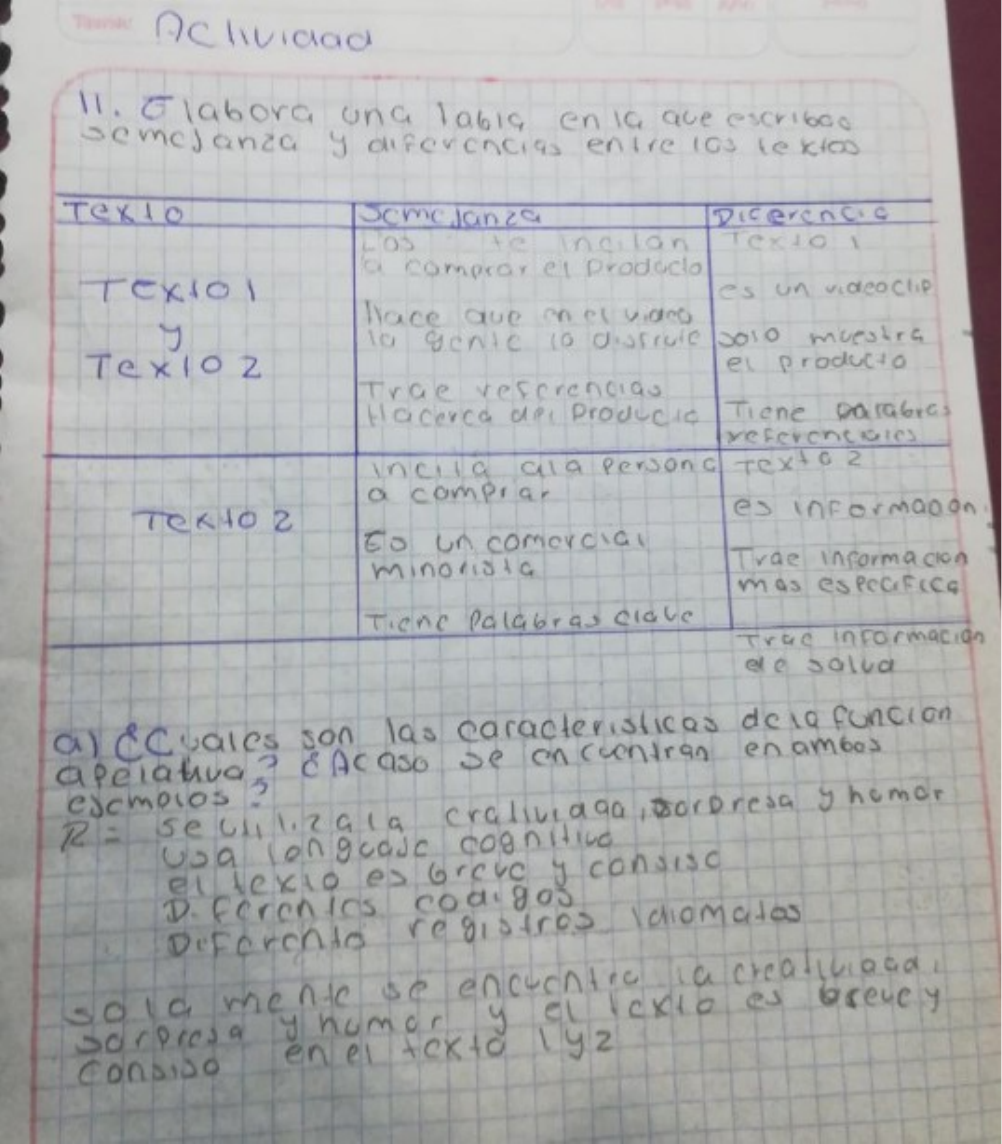 Actividad
11. Elabora una tabla en la que escribas
semejanza y diferencias entre los textos
Texto
Semejanza
Diferencia
Texto 1
y
Texto 2
Los te incitan
a comprar el producto
Hace que en el video
la gente lo disfrute
Trae referencias
Hacerca del producto
Texto 1
es un videoclip
solo muestra
el producto
Tiene palabras
referenciales
Texto 2
Incita ala persona
a comprar
Es un comercial
minorista
Tiene palabras clave
Texto 2
es informacion
Trae informacion
mas especifica
Trae informacion
de salud
a) ¿Cuales son las caracteristicas de la funcion
apelativa? ¿Acaso se encuentran en ambos
ejemplos?
R= se utiliza la cratividad, sorpresa y humor
usa longuaje cognitivo
el texto es breve y consiso
Diferentes codigos
Diferente registros idiomatos
solamente se encuentra la creatividad,
sorpresa y humor y el texto es breve y
consiso en el texto 1 y 2